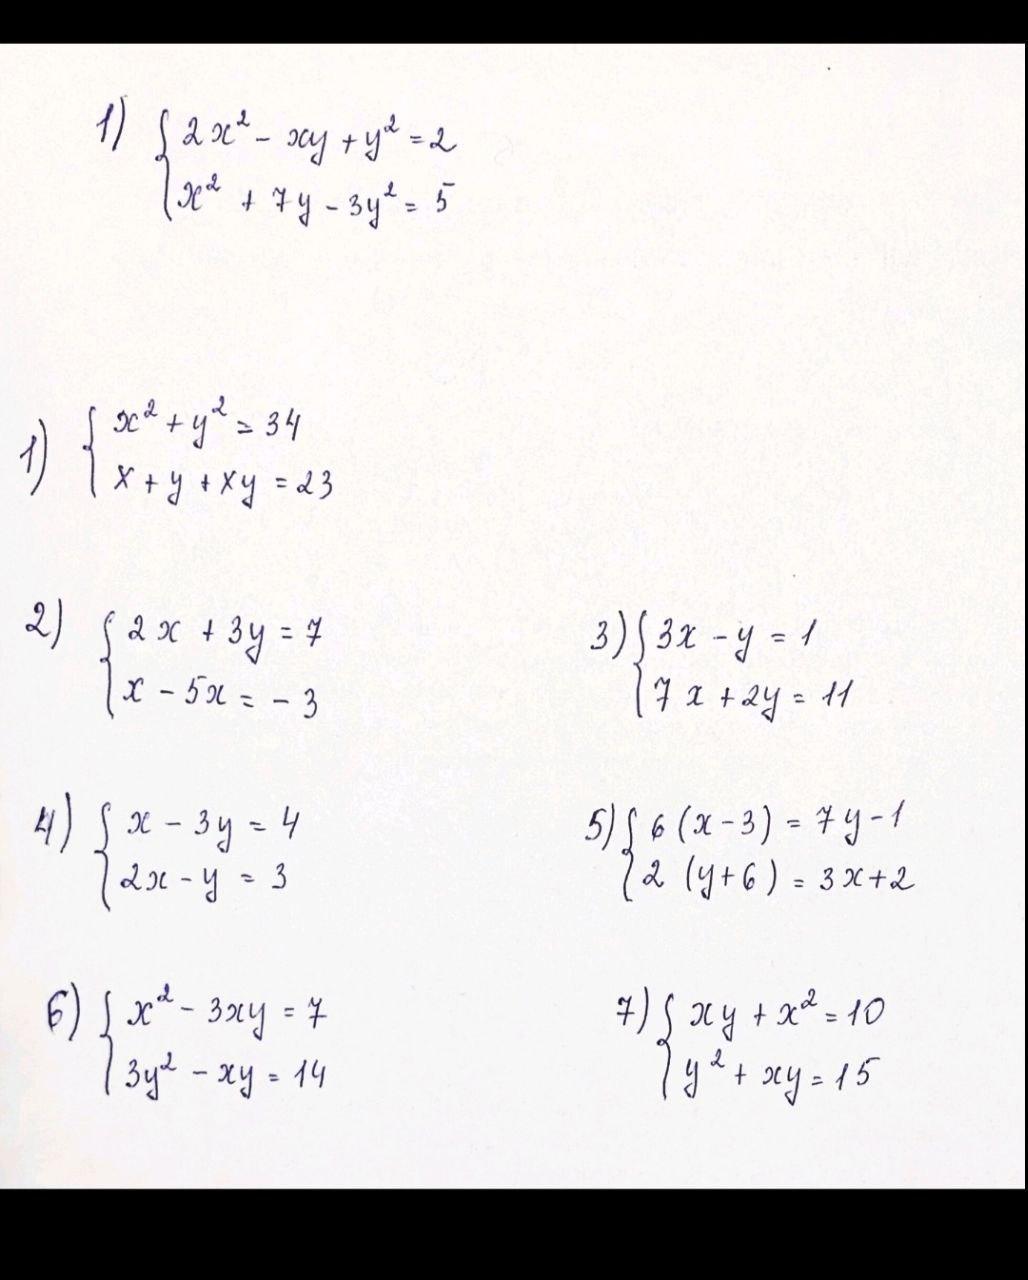 1) { 2x² - xy + y² = 2
x² + 7y - 3y² = 5
1) { x² + y² = 34
x + y + xy = 23
2) { 2x + 3y = 7
x - 5x = - 3
3) { 3x - y = 1
7x + 2y = 11
4) { x - 3y = 4
2x - y = 3
5) { 6 (x - 3) = 7y - 1
2 (y + 6) = 3x + 2
6) { x² - 3xy = 7
3y² - xy = 14
7) { xy + x² = 10
y² + xy = 15